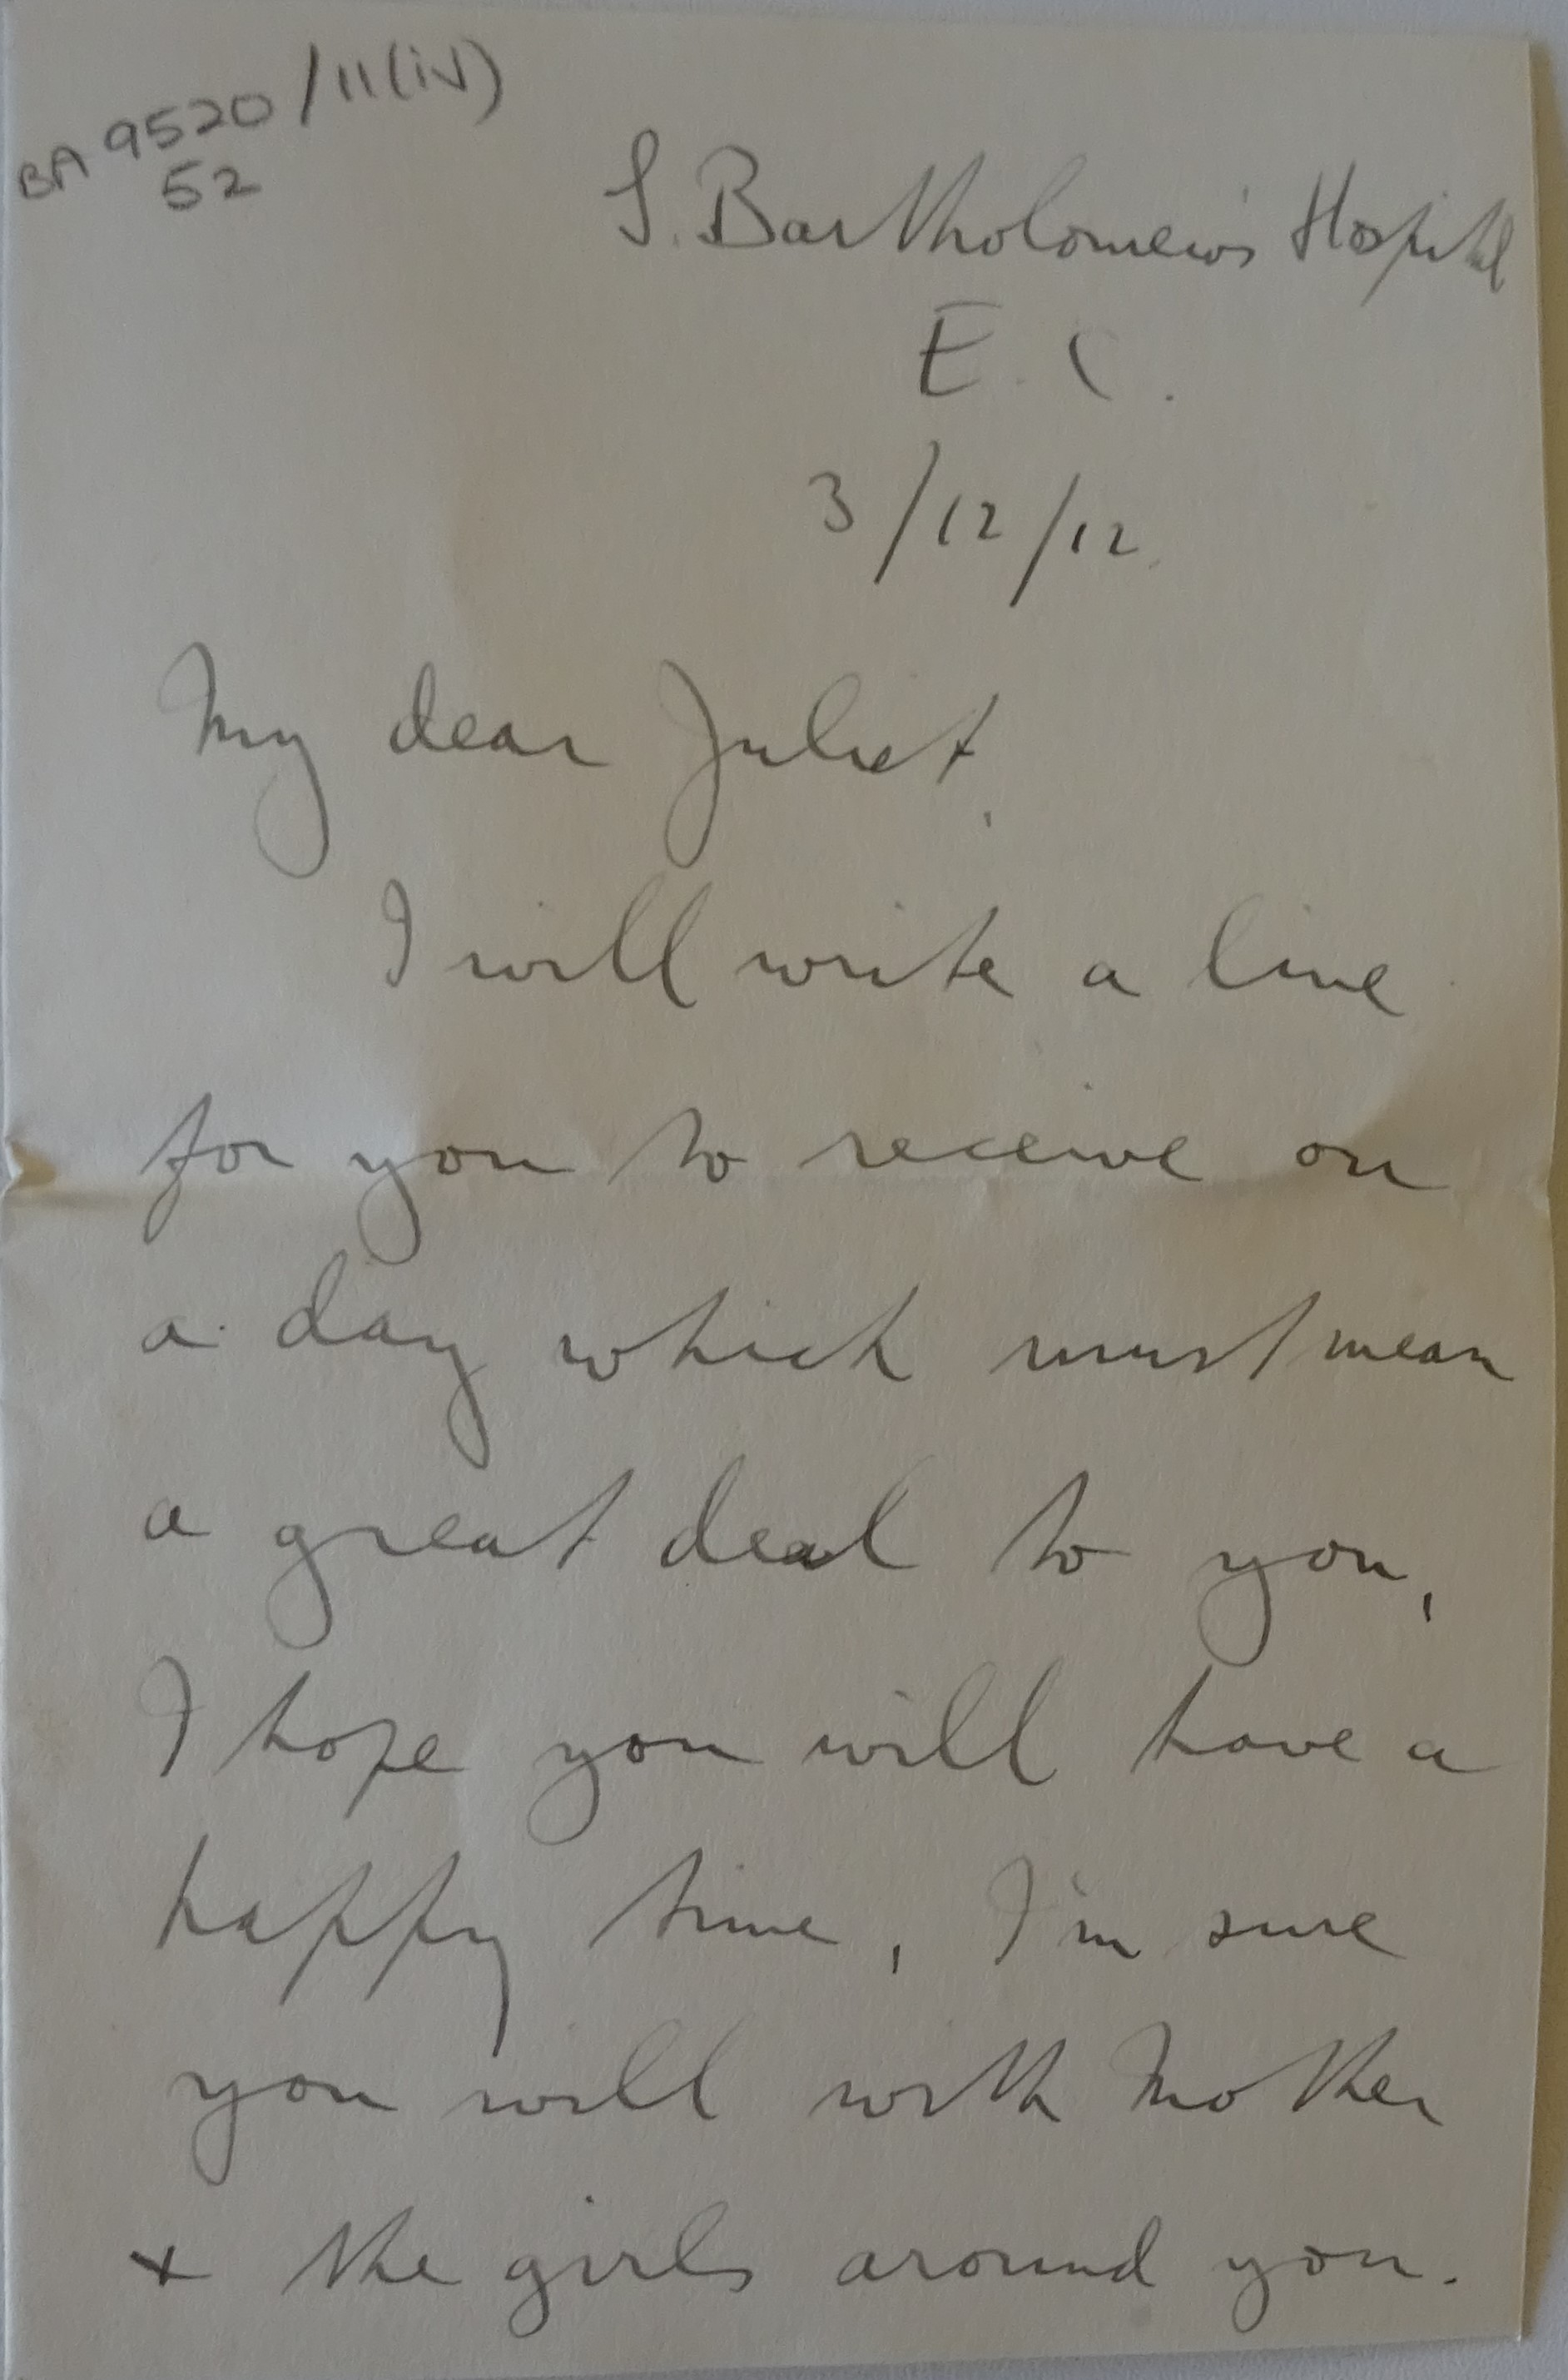 BA 9520/11(iv)
52
S. Bartholomew's Hospital
E. C.
3/12/12.
My dear Juliet,
I will write a line
for you to receive on
a day which must mean
a great deal to you,
I hope you will have a
happy time, I'm sure
you will with Mother
+ the girls around you.